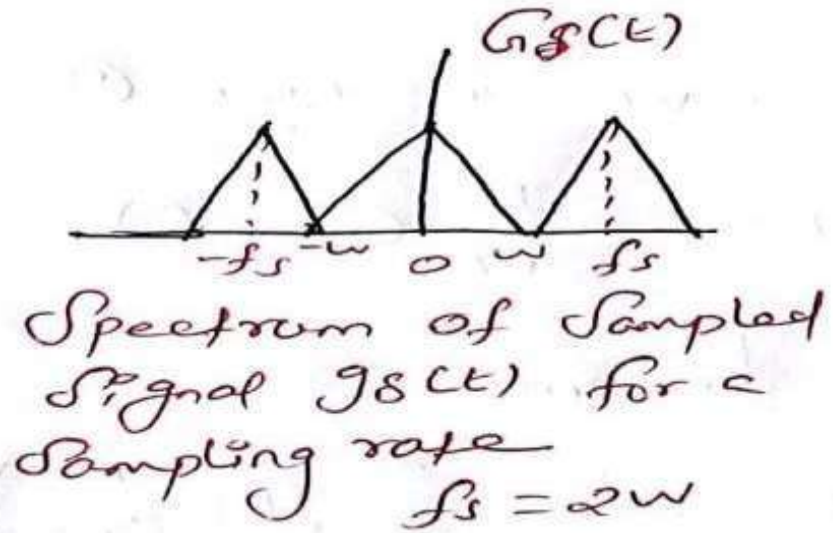 Gδ(t)
-fs -w 0 w fs
Spectrum of Sampled
Signal gδ(t) for a
Sampling rate
fs = 2w